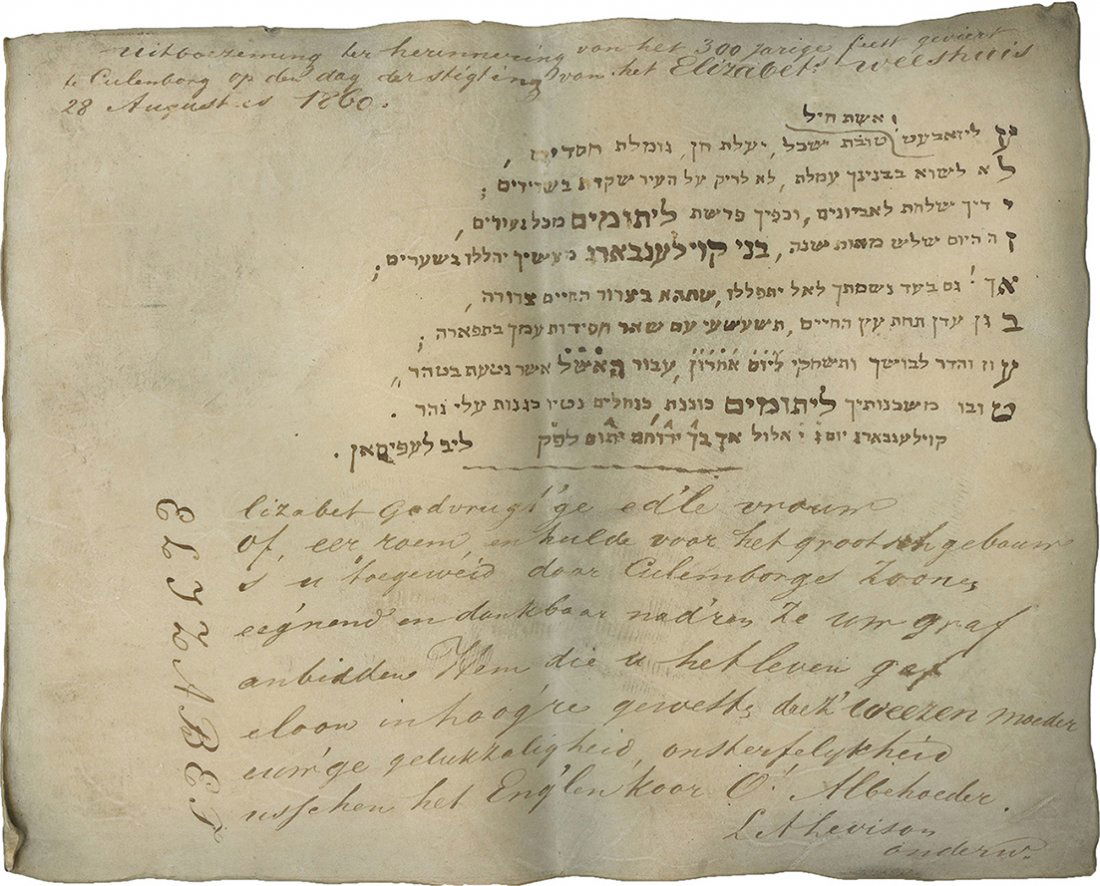 Uitboezeming ter herinnering van het 300 jarige feest gevierd
te Culenborg op den dag der stigting van het Elizabets weeshuis
28 Augustus 1860.
אשת חיל
עליזאבעט טובת ישכל, יעלת חן, גומלת חסדים,
לא לשוא בבנינך עמלת, לא לריק על העיר שקדת בשרידים;
ידיך שלחת לאביונים, וכפיך פרשת ליתומים מכל נעורים,
זה היום שלש מאות שנה, בני קוילענבארג מעשיך יהללו בשערים;
אך גם בעד נשמתך לאל יתפללו, שתהא בצרור החיים צרורה,
בגן עדן תחת עץ החיים, תשעשעי עם שאר חסידות עמך בתפארה;
עוז והדר לבושך ותשחקי ליום אחרון, עבור האשל אשר נטעת בטהר,
טובו משכנותיך ליתומים כוננת כנחלים נטיו כגנות עלי נהר.
קוילענבארג יום אלול אך בך ירוחם יתום לפק ליב לעפיסאן.
ELIZABET
lizabet Godvrugt'ge ed'le vrouw
of, eer roem, en hulde voor het grootsch gebouw
s u toegeweid door Culemborgs Zoonen
eegnend en dankbaar nad'ren ze uw graf
anbidden Hem die u het leven gaf
eloon in hoog're gewesten deez' weezen moeder
euw'ge gelukzaligheid, onsterfelykheid
usschen het Eng'len koor O! Albehoeder.
L A Levison
onderw.